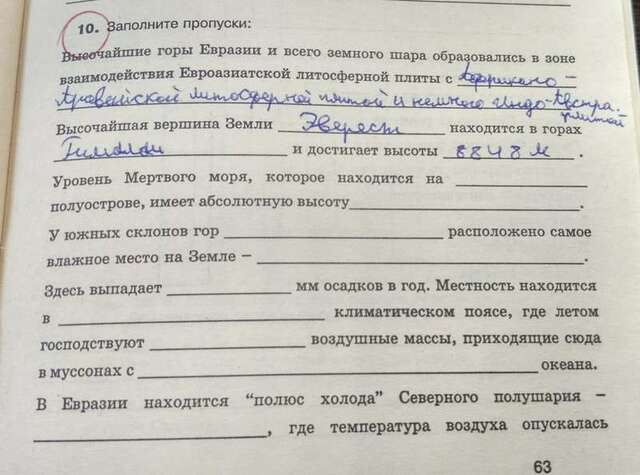 10. Заполните пропуски:
Высочайшие горы Евразии и всего земного шара образовались в зоне
взаимодействия Евроазиатской литосферной плиты с Африкано –
Аравийской литосферной плитой и немного Индо-Австра.
плитой
Высочайшая вершина Земли Эверест находится в горах
Гималаи и достигает высоты 8848 м.
Уровень Мертвого моря, которое находится на
полуострове, имеет абсолютную высоту .
У южных склонов гор расположено самое
влажное место на Земле – .
Здесь выпадает мм осадков в год. Местность находится
в климатическом поясе, где летом
господствуют воздушные массы, приходящие сюда
в муссонах с океана.
В Евразии находится "полюс холода" Северного полушария –
, где температура воздуха опускалась
63